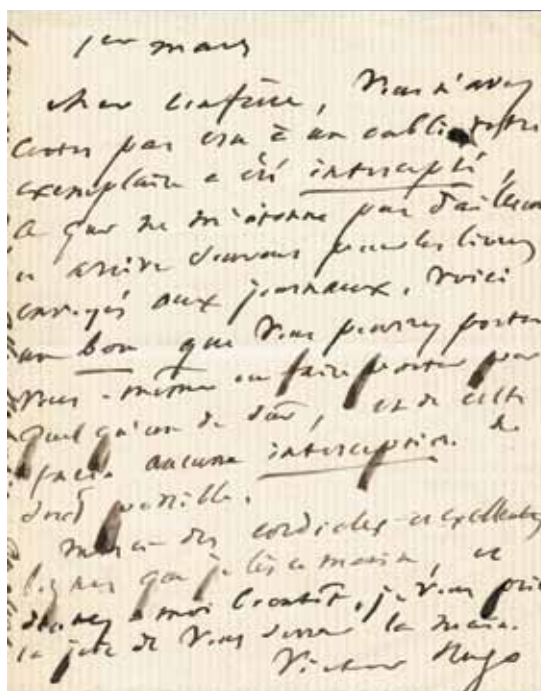 1er mars
cher confrère, Vous n'avez
certes pas cru à un oubli. Votre
exemplaire a été intercepté,
ce qui ne m'étonne pas d'ailleurs
ce arrive souvent pour les livres
envoyés aux journaux. Voici
un bon que Vous pourrez porter
Vous-même ou faire porter par
quelqu'un de sûr, et de cette
façon aucune interception ne
sera possible.
merci des cordiales et excellentes
lignes que je lis ce matin, et
donnez moi bientôt, je Vous prie
la joie de Vous serrer la main.
Victor Hugo